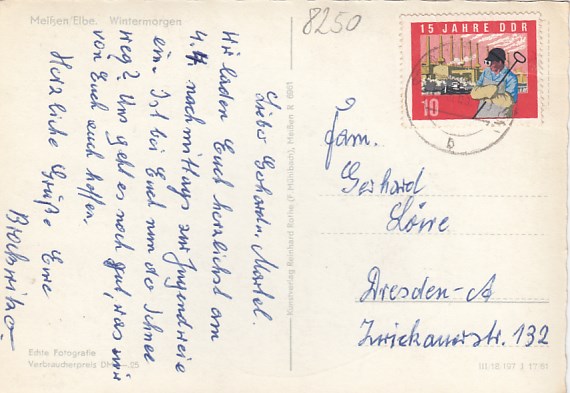 Meißen/Elbe. Wintermorgen
8250
15 JAHRE DDR
10
Lieber Gerhard u. Martel.
Wir laden Euch herzlichst am
4.4. nachmittags zur Jugendweihe
ein. Ist bei Euch nun der Schnee
weg? Uns geht es noch gut, was wir
von Euch auch hoffen.
Herzliche Grüße Eure
Fam.
Gerhard
Löwe
Dresden-A
Zwickauerstr. 132
Kunstverlag Reinhard Rothe (F. Mühlbach), Meißen R 6961
Echte Fotografie
Verbraucherpreis DM -.25
III-18-197 J 17/61